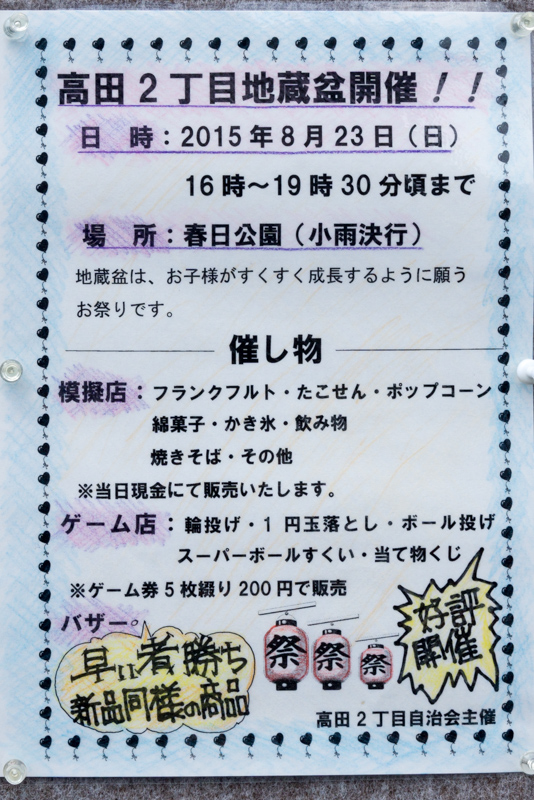 高田2丁目地蔵盆開催！！
日　時：2015年8月23日（日）
16時～19時30分頃まで
場　所：春日公園（小雨決行）
地蔵盆は、お子様がすくすく成長するように願う
お祭りです。
催し物
模擬店：フランクフルト・たこせん・ポップコーン
綿菓子・かき氷・飲み物
焼きそば・その他
※当日現金にて販売いたします。
ゲーム店：輪投げ・1円玉落とし・ボール投げ
スーパーボールすくい・当て物くじ
※ゲーム券5枚綴り200円で販売
バザー
早い者勝ち
新品同様の商品
祭 祭 祭
好評
開催
高田2丁目自治会主催